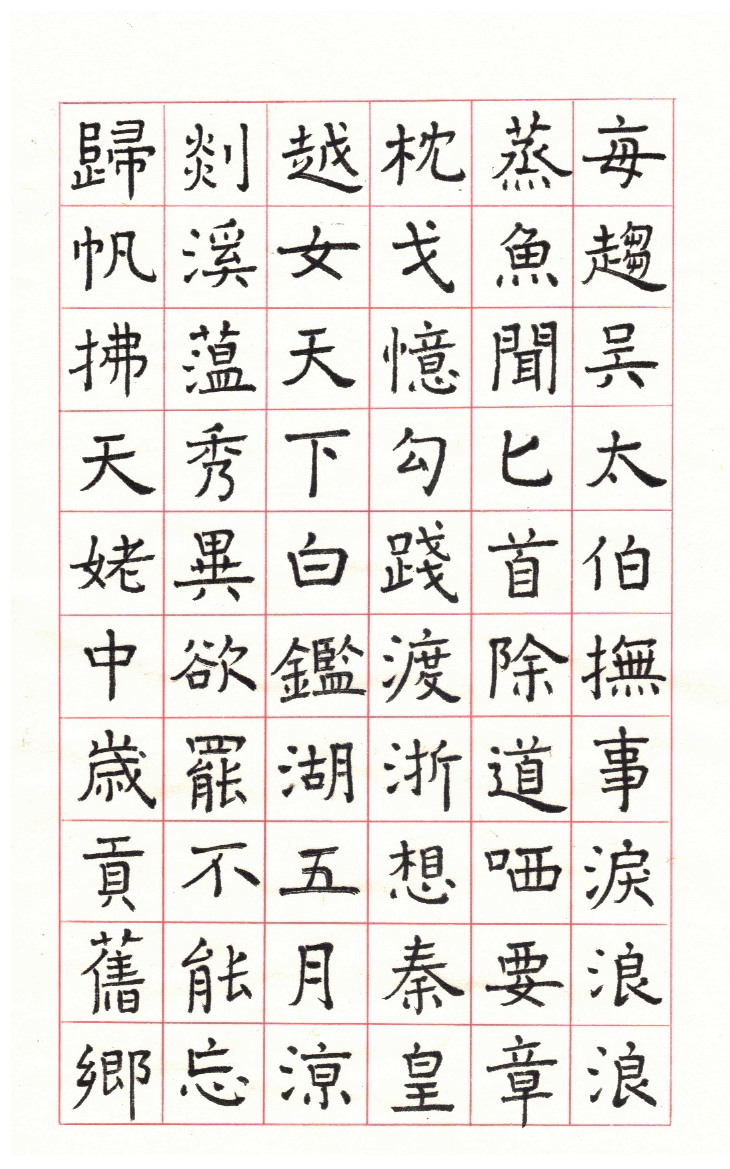 每趨吳太伯撫事淚浪浪
蒸魚聞匕首除道哂要章
枕戈憶勾踐渡浙想秦皇
越女天下白鑑湖五月涼
剡溪蘊秀異欲罷不能忘
歸帆拂天姥中歲貢舊鄉